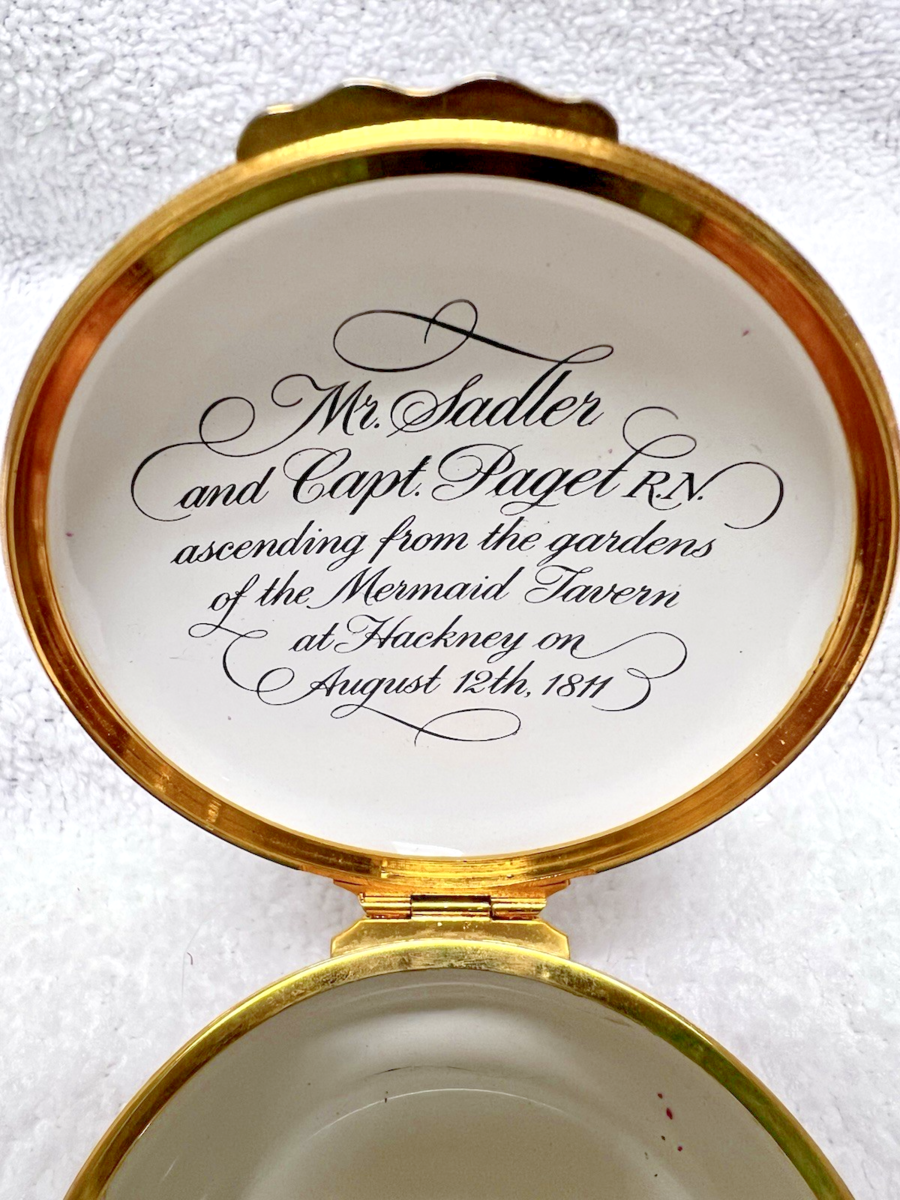 Mr. Sadler
and Capt. Paget R.N.
ascending from the gardens
of the Mermaid Tavern
at Hackney on
August 12th, 1811